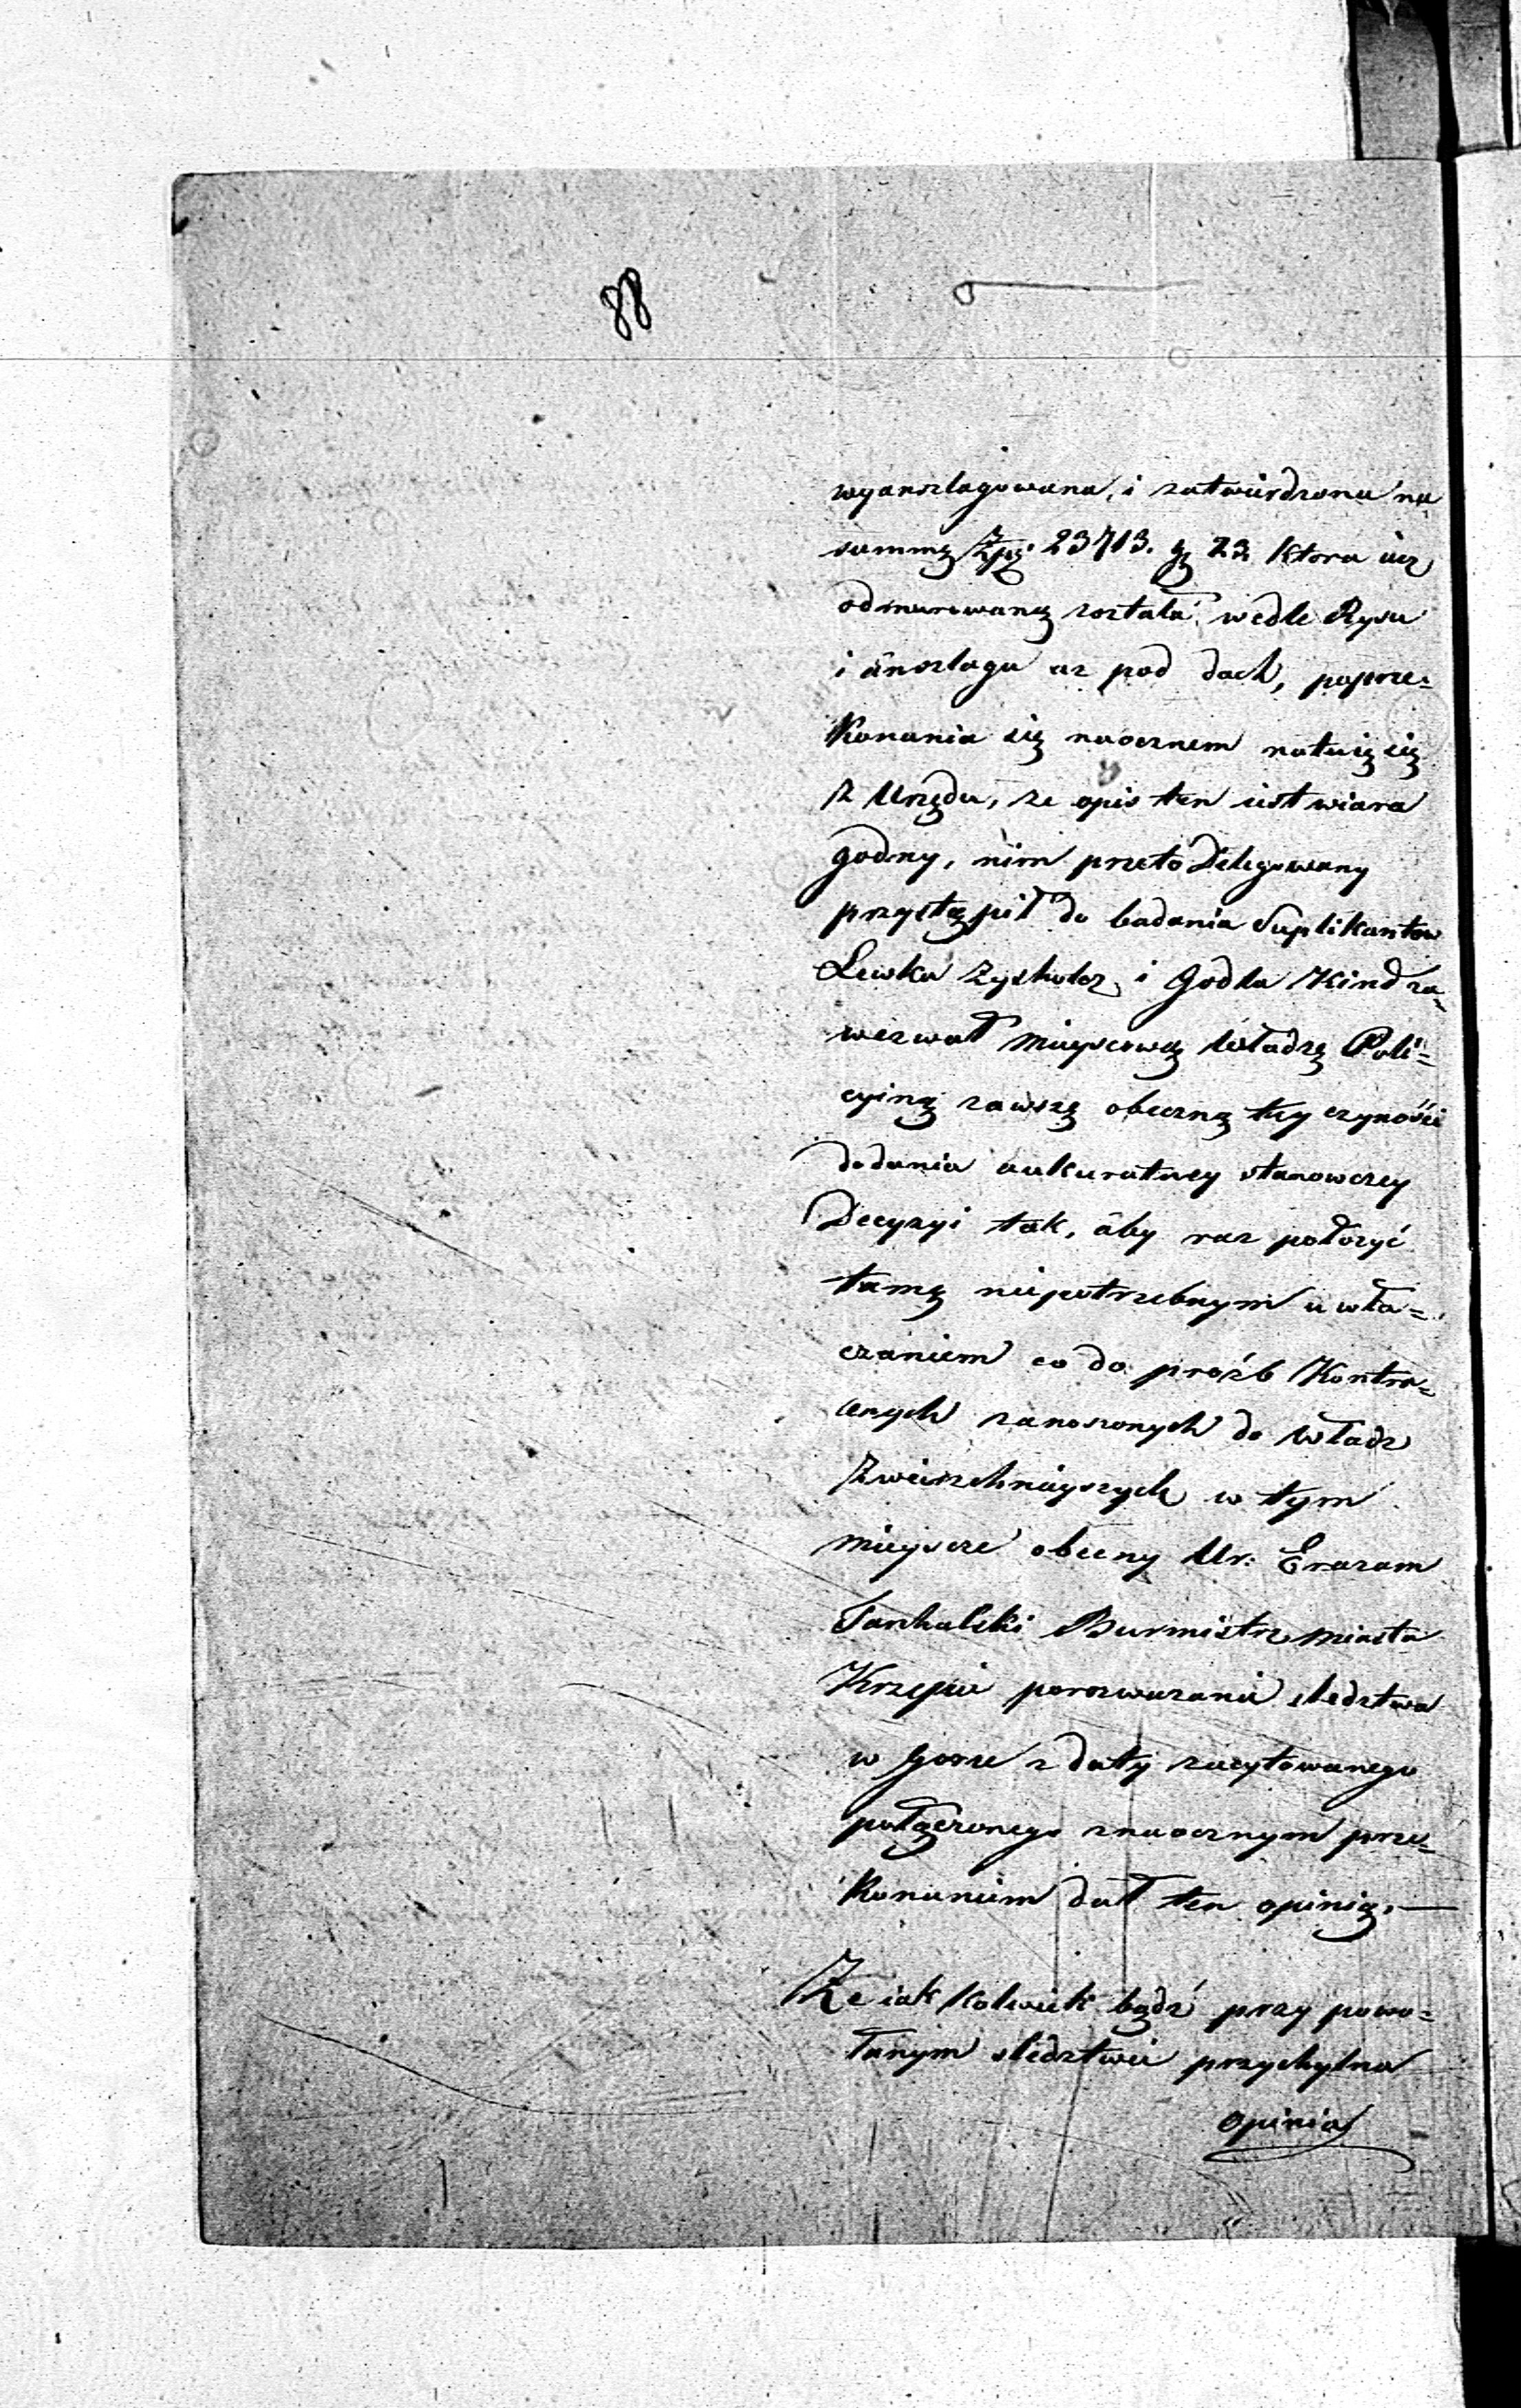 88
wyanszlagowana, i zatwierdzona na
summę Złp: 23713. g 23 ktora iuz
odmurowaną została wedle Rysu
i anszlagu az pod dach, poprze-
konania się naocznem
z Urzędu, ze opis ten iest wiara
godny, nim przeto Delegowany
przystąpił do badania Suplikantow
Lewka Zyskolcz i Godla Kind za-
wezwał mieyscową Władzę Poli-
cyiną zawszę obeczną tey czynośći
dodania aukuratney stanowczey
Decyzyi tak, aby raz połozyć
tamę niepotrzebnym uwła-
czaniem co do proźb Kontra-
cnych zanoszonych do Władz
Zwierzchnieyszych w tym
mieyscze obecny Ur: Erazam
Burmistrz miasta
Krzepic porozwazaniu sledztwa
w gorze z daty zacytowanego
połączonego znaocznym prze-
konaniem dał ten opinią, —
Ze iak kolwiek bądź przy powo-
łanym sledztwie przychylna
opinia